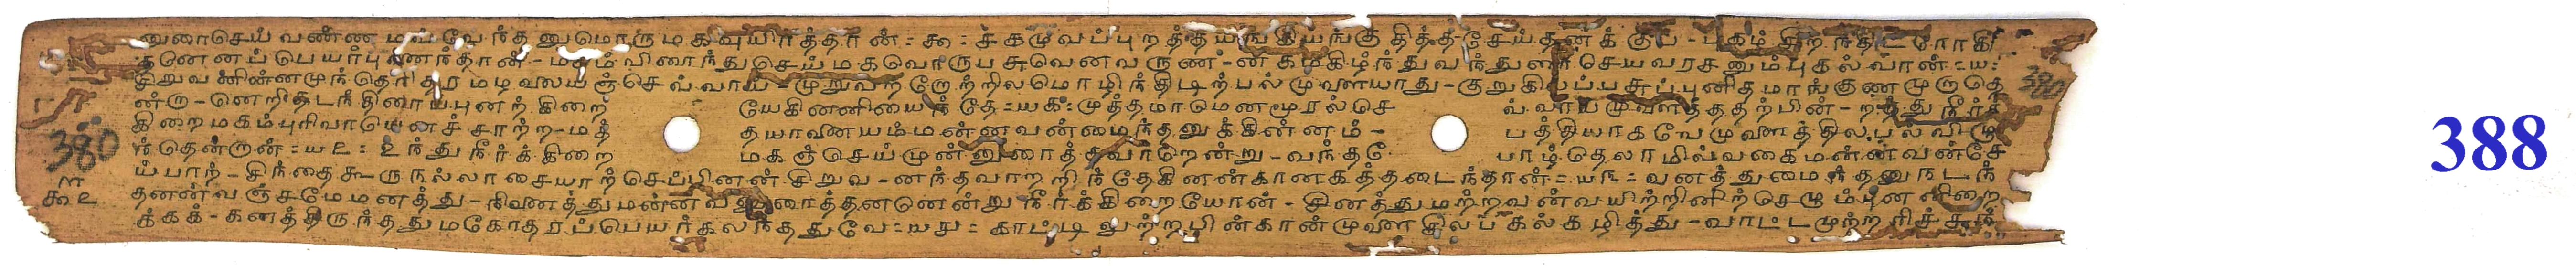 னுரைசெய் வண்ண மவ் வேந்த னுமொரு மகவுயிர்த்தான் = ௬ = ச்கமுவப்புறத்த யங்கியங்கு தித்த சேய்தனக் குப - புகழ் சிறந்திட
பெயர்புனைந்தான் - விரைந்துசெய் மகவொருப சுவெனவருண - ன் கழகிழ்ந்துவந்துரை செயவரசனும்புகல்வான் = ய =
சிறுவ னின்னமுந்தெரி தர மடி வலயஞ்செவ்வாய் - முறுவற்றோற்றிலமொழிந்திடிற்பல் முளையாது - குறுகிலப்பசுப்புனிதமாங்குணமுருதெ
ன்ரு - னெறிதிடந் தினாயபுனற்கிறை யேகினனியைந் தே = ய௧ = முத்தமாடுமணமூரல்செ வ்வாய்முளைத்ததற்பின் - றத்துநீர்க்
கிறைமகம்புரிவாயெனச்சாற்ற - மத் தயாவினயம்மன்னவன்மைந்தனுக்கின்னம் - பத்தியாகவேமுளைத்தில பல்விழு
ந்தென்றான் = ய௨ = உந்துநீர்க்கிறை மகஞ்செய்முன்னுரைத்தவாறென்று - வந்தடே பாழ்தெலாமிவ்வகைமன்னவன்சே
ய்பாற் - சிந்தைகூருநல்லாசையாற்செப்பினன் சிறுவ - னந்தவாறறிந்தேகினன்கானகத்தடைந்தான் = ய௩ = வனத்துமைந்தனுநடந்
தனண்வஞ்சமேமனத்து - நினைத்துமன்னவனுரைத்தனனென்று நீர்க்கிறையோன் - சினத்துமற்றவன்வயிற்றினிற்செழும்புனனிறை
க்கக் - கனத்திருந்ததுமகோதரப்பெயர்கலந்ததுவே = ய௪ = காட்டி லுற்றபின்கான்முளை சிலப கல்கழித்து - வாட்டமுற்றரிச்ச
380
௩
௬௨
380
388